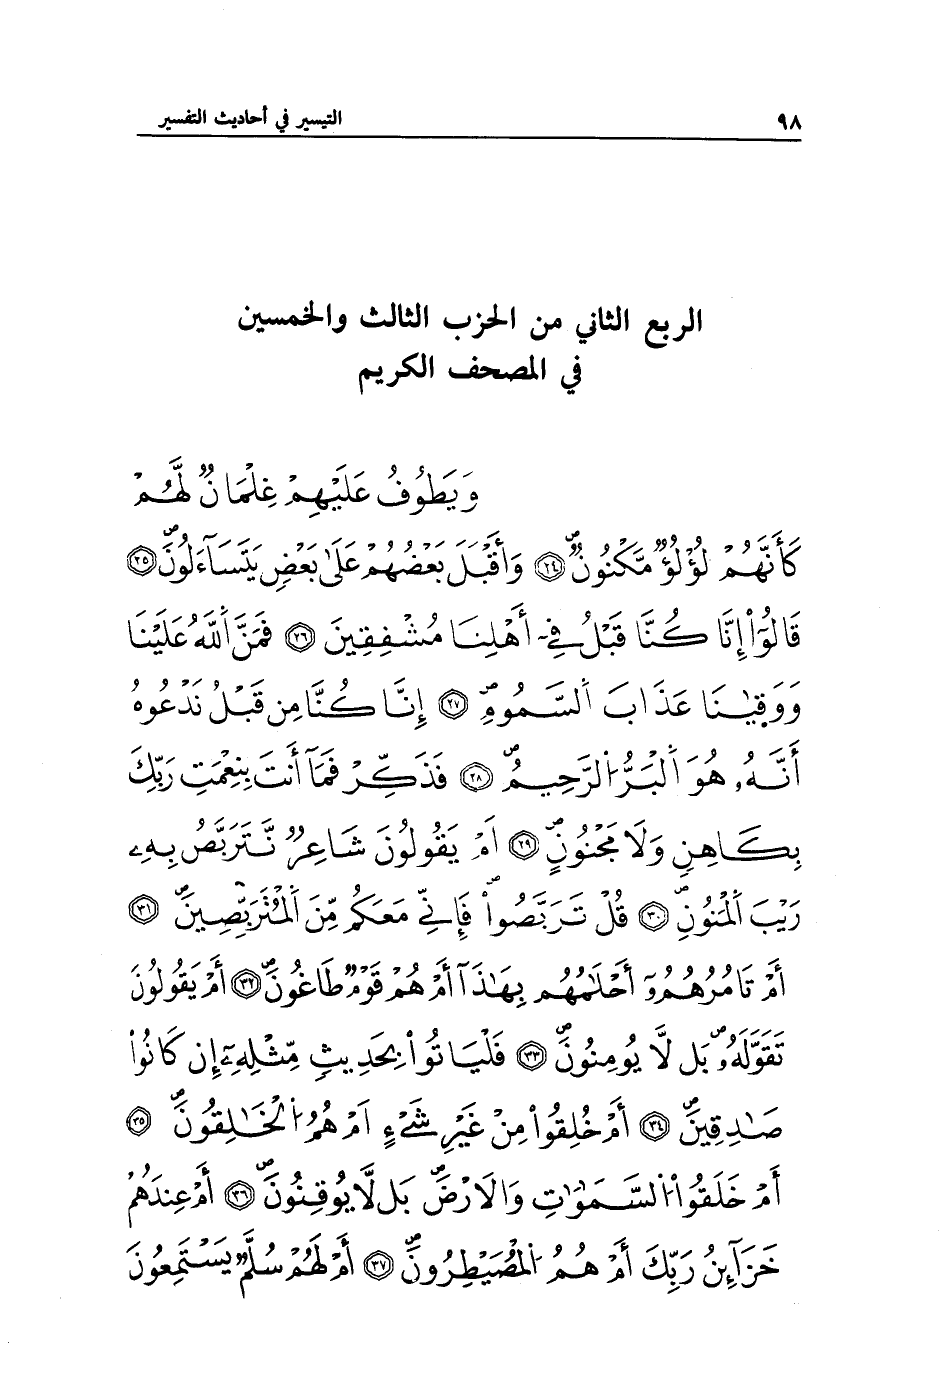 ٩٨ التيسير في أحاديث التفسير
الربع الثاني من الحزب الثالث والخمسين
في المصحف الكريم
وَيَطُوفُ عَلَيْهِمْ غِلْمَانٌ لَّهُمْ
كَأَنَّهُمْ لُؤْلُؤٌ مَّكْنُونٌ ٢٤ وَأَقْبَلَ بَعْضُهُمْ عَلَىٰ بَعْضٍ يَتَسَآءَلُونَ ٢٥
قَالُوٓاْ إِنَّا كُنَّا قَبْلُ فِےٓ أَهْلِنَا مُشْفِقِينَ ٢٦ فَمَنَّ اَللَّهُ عَلَيْنَا
وَوَقِيٰنَا عَذَابَ اَلسَّمُومِ ٢٧ إِنَّا كُنَّا مِن قَبْلُ نَدْعُوهُ
أَنَّهُۥ هُوَ اَلْبَرُّ اُلرَّحِيمُ ٢٨ فَذَكِّرْ فَمَآ أَنتَ بِنِعْمَتِ رَبِّكَ
بِكَاهِنٍ وَلَا مَجْنُونٍ ٢٩ أَمْ يَقُولُونَ شَاعِرٌ نَّتَرَبَّصُ بِهِۦ
رَيْبَ اَلْمَنُونِ ٣٠ قُلْ تَرَبَّصُواْ فَإِنِّے مَعَكُم مِّنَ اَلْمُتَرَبِّصِينَ ٣١
أَمْ تَامُرُهُمُۥٓ أَحْلَٰمُهُم بِهَٰذَآ أَمْ هُمْ قَوْمٌ طَاغُونَ ٣٢ أَمْ يَقُولُونَ
تَقَوَّلَهُۥ بَل لَّا يُومِنُونَ ٣٣ فَلْيَاتُواْ بِحَدِيثٍ مِّثْلِهِۦٓ إِن كَانُواْ
صَٰدِقِينَ ٣٤ أَمْ خُلِقُواْ مِنْ غَيْرِ شَےْءٍ اَمْ هُمُ اُلْخَٰلِقُونَ ٣٥
أَمْ خَلَقُواْ اُلسَّمَٰوَٰتِ وَالَارْضَ بَل لَّا يُوقِنُونَ ٣٦ أَمْ عِندَهُمْ
خَزَآئِنُ رَبِّكَ أَمْ هُمُ اُلْمُصَيْطِرُونَ ٣٧ أَمْ لَهُمْ سُلَّمٌ يَسْتَمِعُونَ